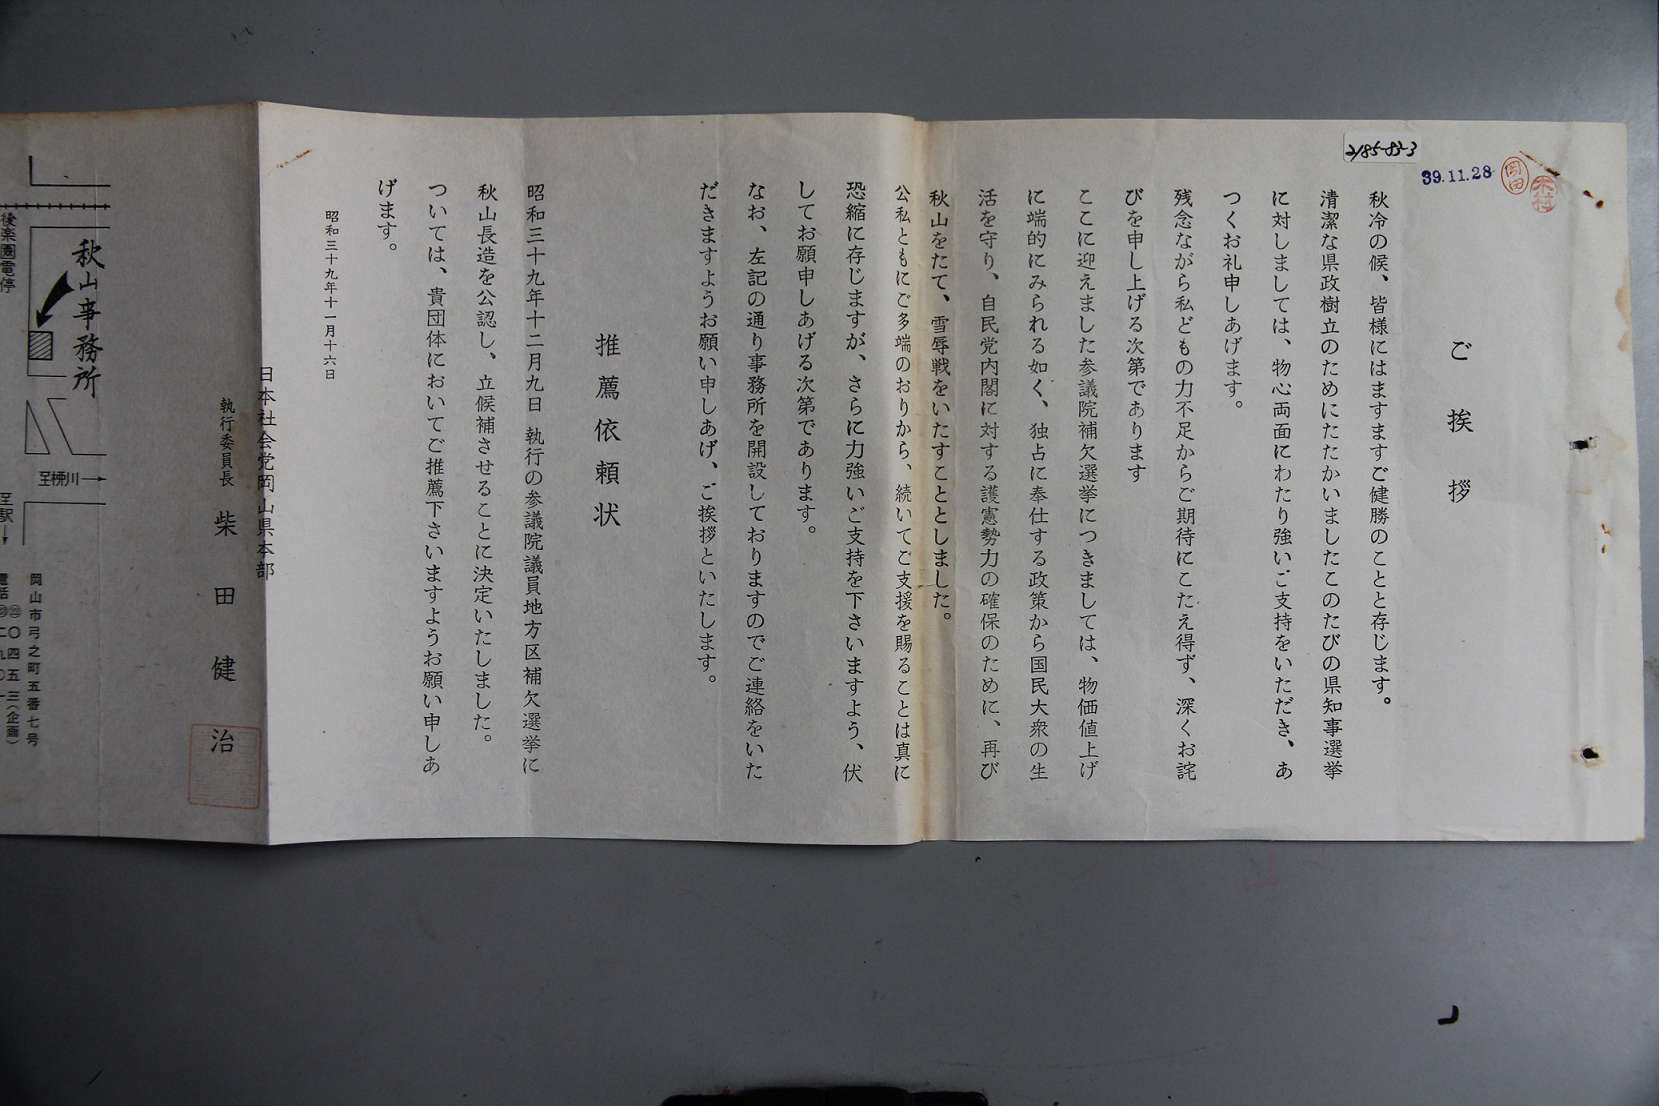 2185-83-3
39.11.28
岡田
ご挨拶
秋冷の候、皆様にはますますご健勝のことと存じます。
清潔な県政樹立のためにたたかいましたこのたびの県知事選挙
に対しましては、物心両面にわたり強いご支持をいただき、あ
つくお礼申しあげます。
残念ながら私どもの力不足からご期待にこたえ得ず、深くお詫
びを申し上げる次第であります
ここに迎えました参議院補欠選挙につきましては、物価値上げ
に端的にみられる如く、独占に奉仕する政策から国民大衆の生
活を守り、自民党内閣に対する護憲勢力の確保のために、再び
秋山をたて、雪辱戦をいたすこととしました。
公私ともにご多端のおりから、続いてご支援を賜ることは真に
恐縮に存じますが、さらに力強いご支持を下さいますよう、伏
してお願申しあげる次第であります。
なお、左記の通り事務所を開設しておりますのでご連絡をいた
だきますようお願い申しあげ、ご挨拶といたします。
推薦依頼状
昭和三十九年十二月九日執行の参議院議員地方区補欠選挙に
秋山長造を公認し、立候補させることに決定いたしました。
ついては、貴団体においてご推薦下さいますようお願い申しあ
げます。
昭和三十九年十一月十六日
日本社会党岡山県本部
執行委員長 柴田健治
秋山事務所
後楽園電停
至柳川
至駅
岡山市弓之町五番七号
〇四五三(企画)